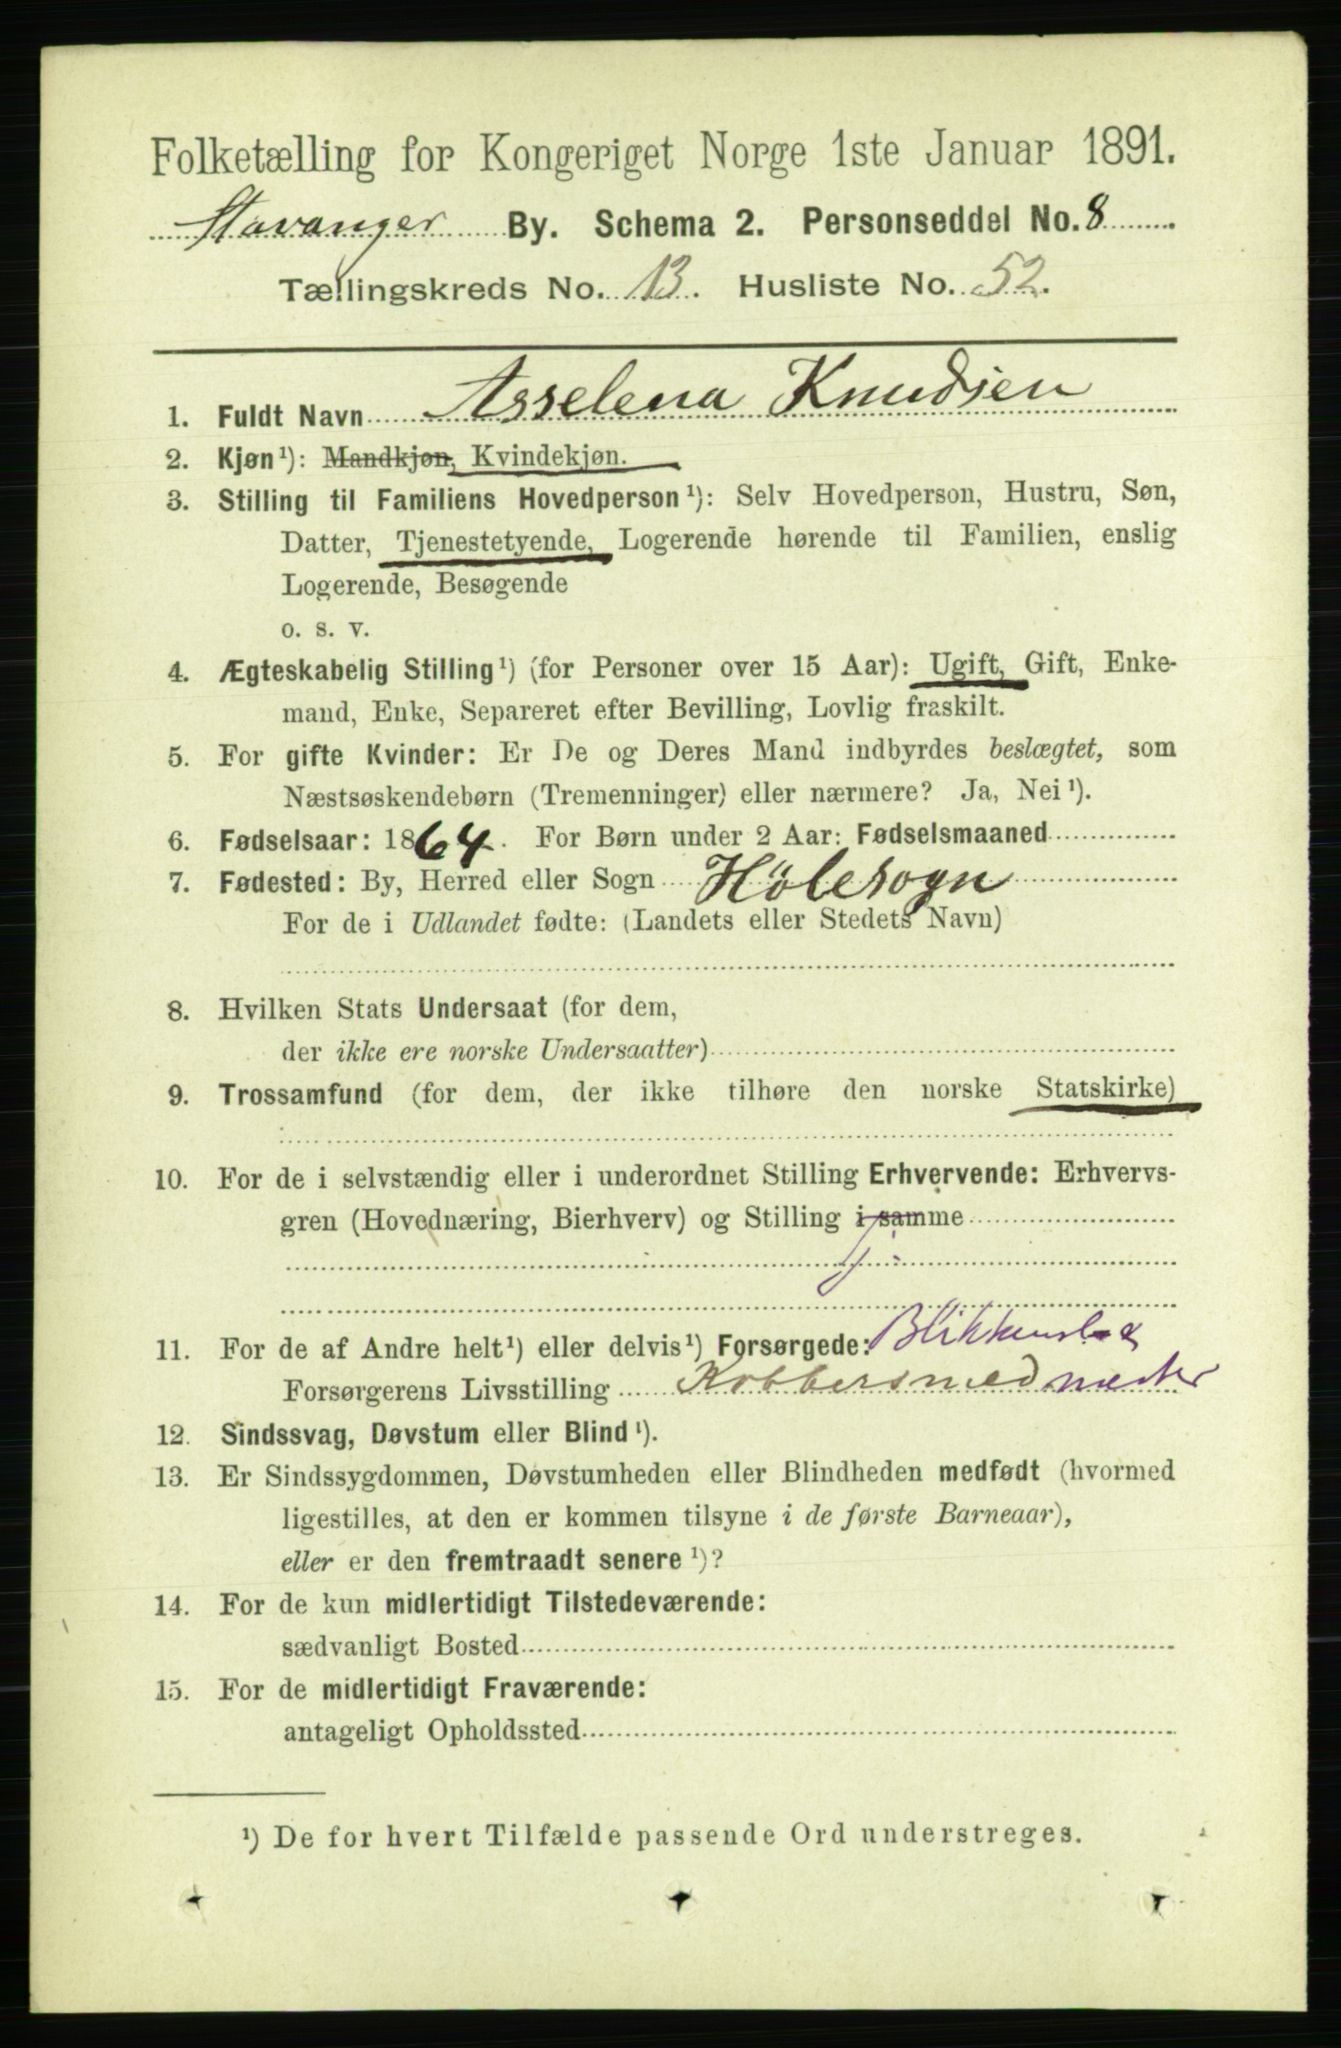 Folketælling for Kongeriget Norge 1ste Januar 1891.
Stavanger By. Schema 2. Personseddel No. 8
Tællingskreds No. 13. Husliste No. 52.
1. Fuldt Navn Asselena Knudsen
2. Kjøn¹): Mandkjøn, Kvindekjøn.
3. Stilling til Familiens Hovedperson¹): Selv Hovedperson, Hustru, Søn,
Datter, Tjenestetyende, Logerende hørende til Familien, enslig
Logerende, Besøgende
o. s. v.
4. Ægteskabelig Stilling¹) (for Personer over 15 Aar): Ugift, Gift, Enke-
mand, Enke, Separeret efter Bevilling, Lovlig fraskilt.
5. For gifte Kvinder: Er De og Deres Mand indbyrdes beslægtet, som
Næstsøskendebørn (Tremenninger) eller nærmere? Ja, Nei¹).
6. Fødselsaar: 1864. For Børn under 2 Aar: Fødselsmaaned
7. Fødested: By, Herred eller Sogn Hölesogn
For de i Udlandet fødte: (Landets eller Stedets Navn)
8. Hvilken Stats Undersaat (for dem,
der ikke ere norske Undersaatter)
9. Trossamfund (for dem, der ikke tilhøre den norske Statskirke)
10. For de i selvstændig eller i underordnet Stilling Erhvervende: Erhvervs-
gren (Hovednæring, Bierhverv) og Stilling i samme
11. For de af Andre helt¹) eller delvis¹) Forsørgede: Blikkensl. &
Forsørgerens Livsstilling Kobbersmedmester
12. Sindssvag, Døvstum eller Blind¹).
13. Er Sindssygdommen, Døvstumheden eller Blindheden medfødt (hvormed
ligestilles, at den er kommen tilsyne i de første Barneaar),
eller er den fremtraadt senere¹)?
14. For de kun midlertidigt Tilstedeværende:
sædvanligt Bosted
15. For de midlertidigt Fraværende:
antageligt Opholdssted
¹) De for hvert Tilfælde passende Ord understreges.